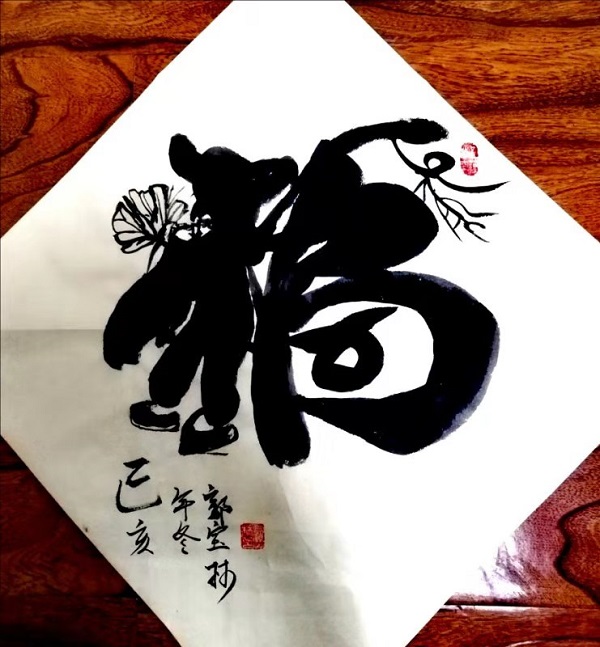 福
己亥
年冬
郭宝林